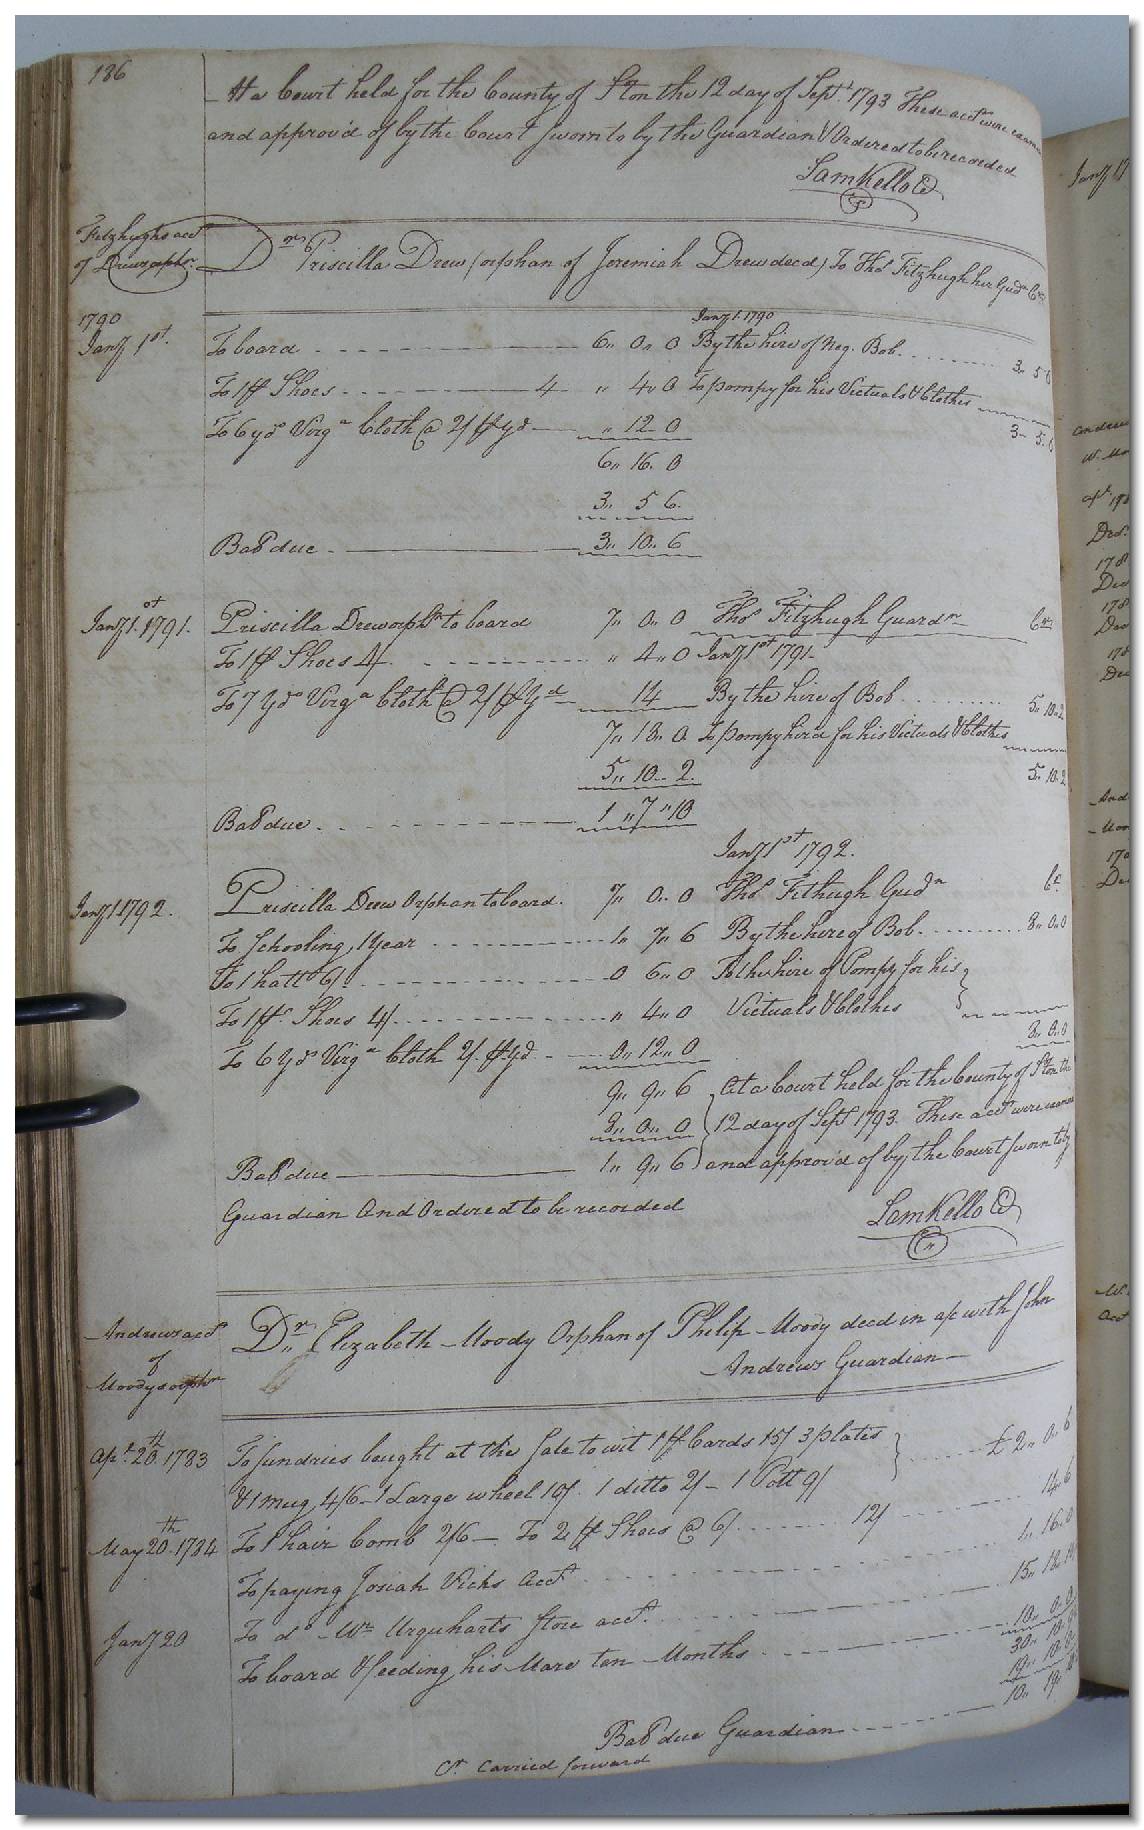 186
At a Court held for the County of Sºton the 12 day of Sept. 1793 These acct were
and approvd of by the Court sworn to by the Guardian & Ordered to be recorded
Sam Kello C
Fitzhughs acct
of Drews orph.
Dr. Priscilla Drew (orphan of Jeremiah Drew decd) To Thos Fitzhugh her Gudn Cr
1790
Jany 1st.
Jany 1. 1790
To board 6,, 0,, 0 By the hire of Neg. Bob. 3,, 5
To 1 pr Shoes 4 ,, 4,, 0 To pompy for his Victuals & Clothes
To 6 yds Virga Cloth @ 2/ pr yd ,, 12 0 3,, 5
6,, 16. 0
3,, 5 6.
Bal due 3,, 10,, 6
Jany 1st. 1791. Priscilla Drew orph to board 7,, 0,, 0 Thos Fitzhugh Guardn Cr
To 1 pr Shoes 4/. ,, 4,, 0 Jany 1st 1791.
To 7 Yds Virga Cloth @ 2/ pr Yd 14 By the hire of Bob 5,, 10,, 2
7,, 18,, 0 To pompy hird for his Victuals & Clothes
5,, 10,, 2. 5,, 10,, 2
Bal due 1,, 7,, 10
Jany 1st 1792.
Jany 1 1792. Priscilla Drew Orphan to board. 7,, 0,, 0 Thos Fithugh Gudn Cr
To Schooling 1 Year 1,, 7,, 6 By the hire of Bob. 8,, 0,, 0
To 1 hatt 6/. 0 6,, 0 To the hire of Pompy for his
To 1 pr. Shoes 4/. ,, 4,, 0 Victuals & Clothes
To 6 Yds Virga Cloth 2/. pr yd. 0,, 12,, 0 8,, 0,, 0
9,, 9,, 6 At a Court held for the County of Sºton the
8,, 0,, 0 12 day of Sept 1793. These acct were
Bal due 1,, 9,, 6 and approvd of by the Court sworn to by
Guardian And Ordered to be recorded
Sam Kello C
Andrews acct
of
Moodys orphn
Dr. Elizabeth Moody Orphan of Philip Moody decd in a/c with John
Andrews Guardian
Apl. 20th. 1783 To sundries bought at the Sale to wit 1 pr Cards 15/ 3 plates
& 1 mug 4/6 - 1 Large wheel 10/. 1 ditto 2/ - 1 Pott 9/ £ 2,, 0,, 6
May 20th. 1784 To 1 hair Comb 2/6 - To 2 pr Shoes @ 6/ 12/ 14,, 6
To paying Josiah Vicks Acct 1,, 16,, 0
To do Wm Urquharts Store acct. 15,, 18
Jany 20 To board & feeding his Mare ten Months 10,, 0,, 0
30,, 10
19,, 10
Bal due Guardian 10,, 19
Cr carried forward